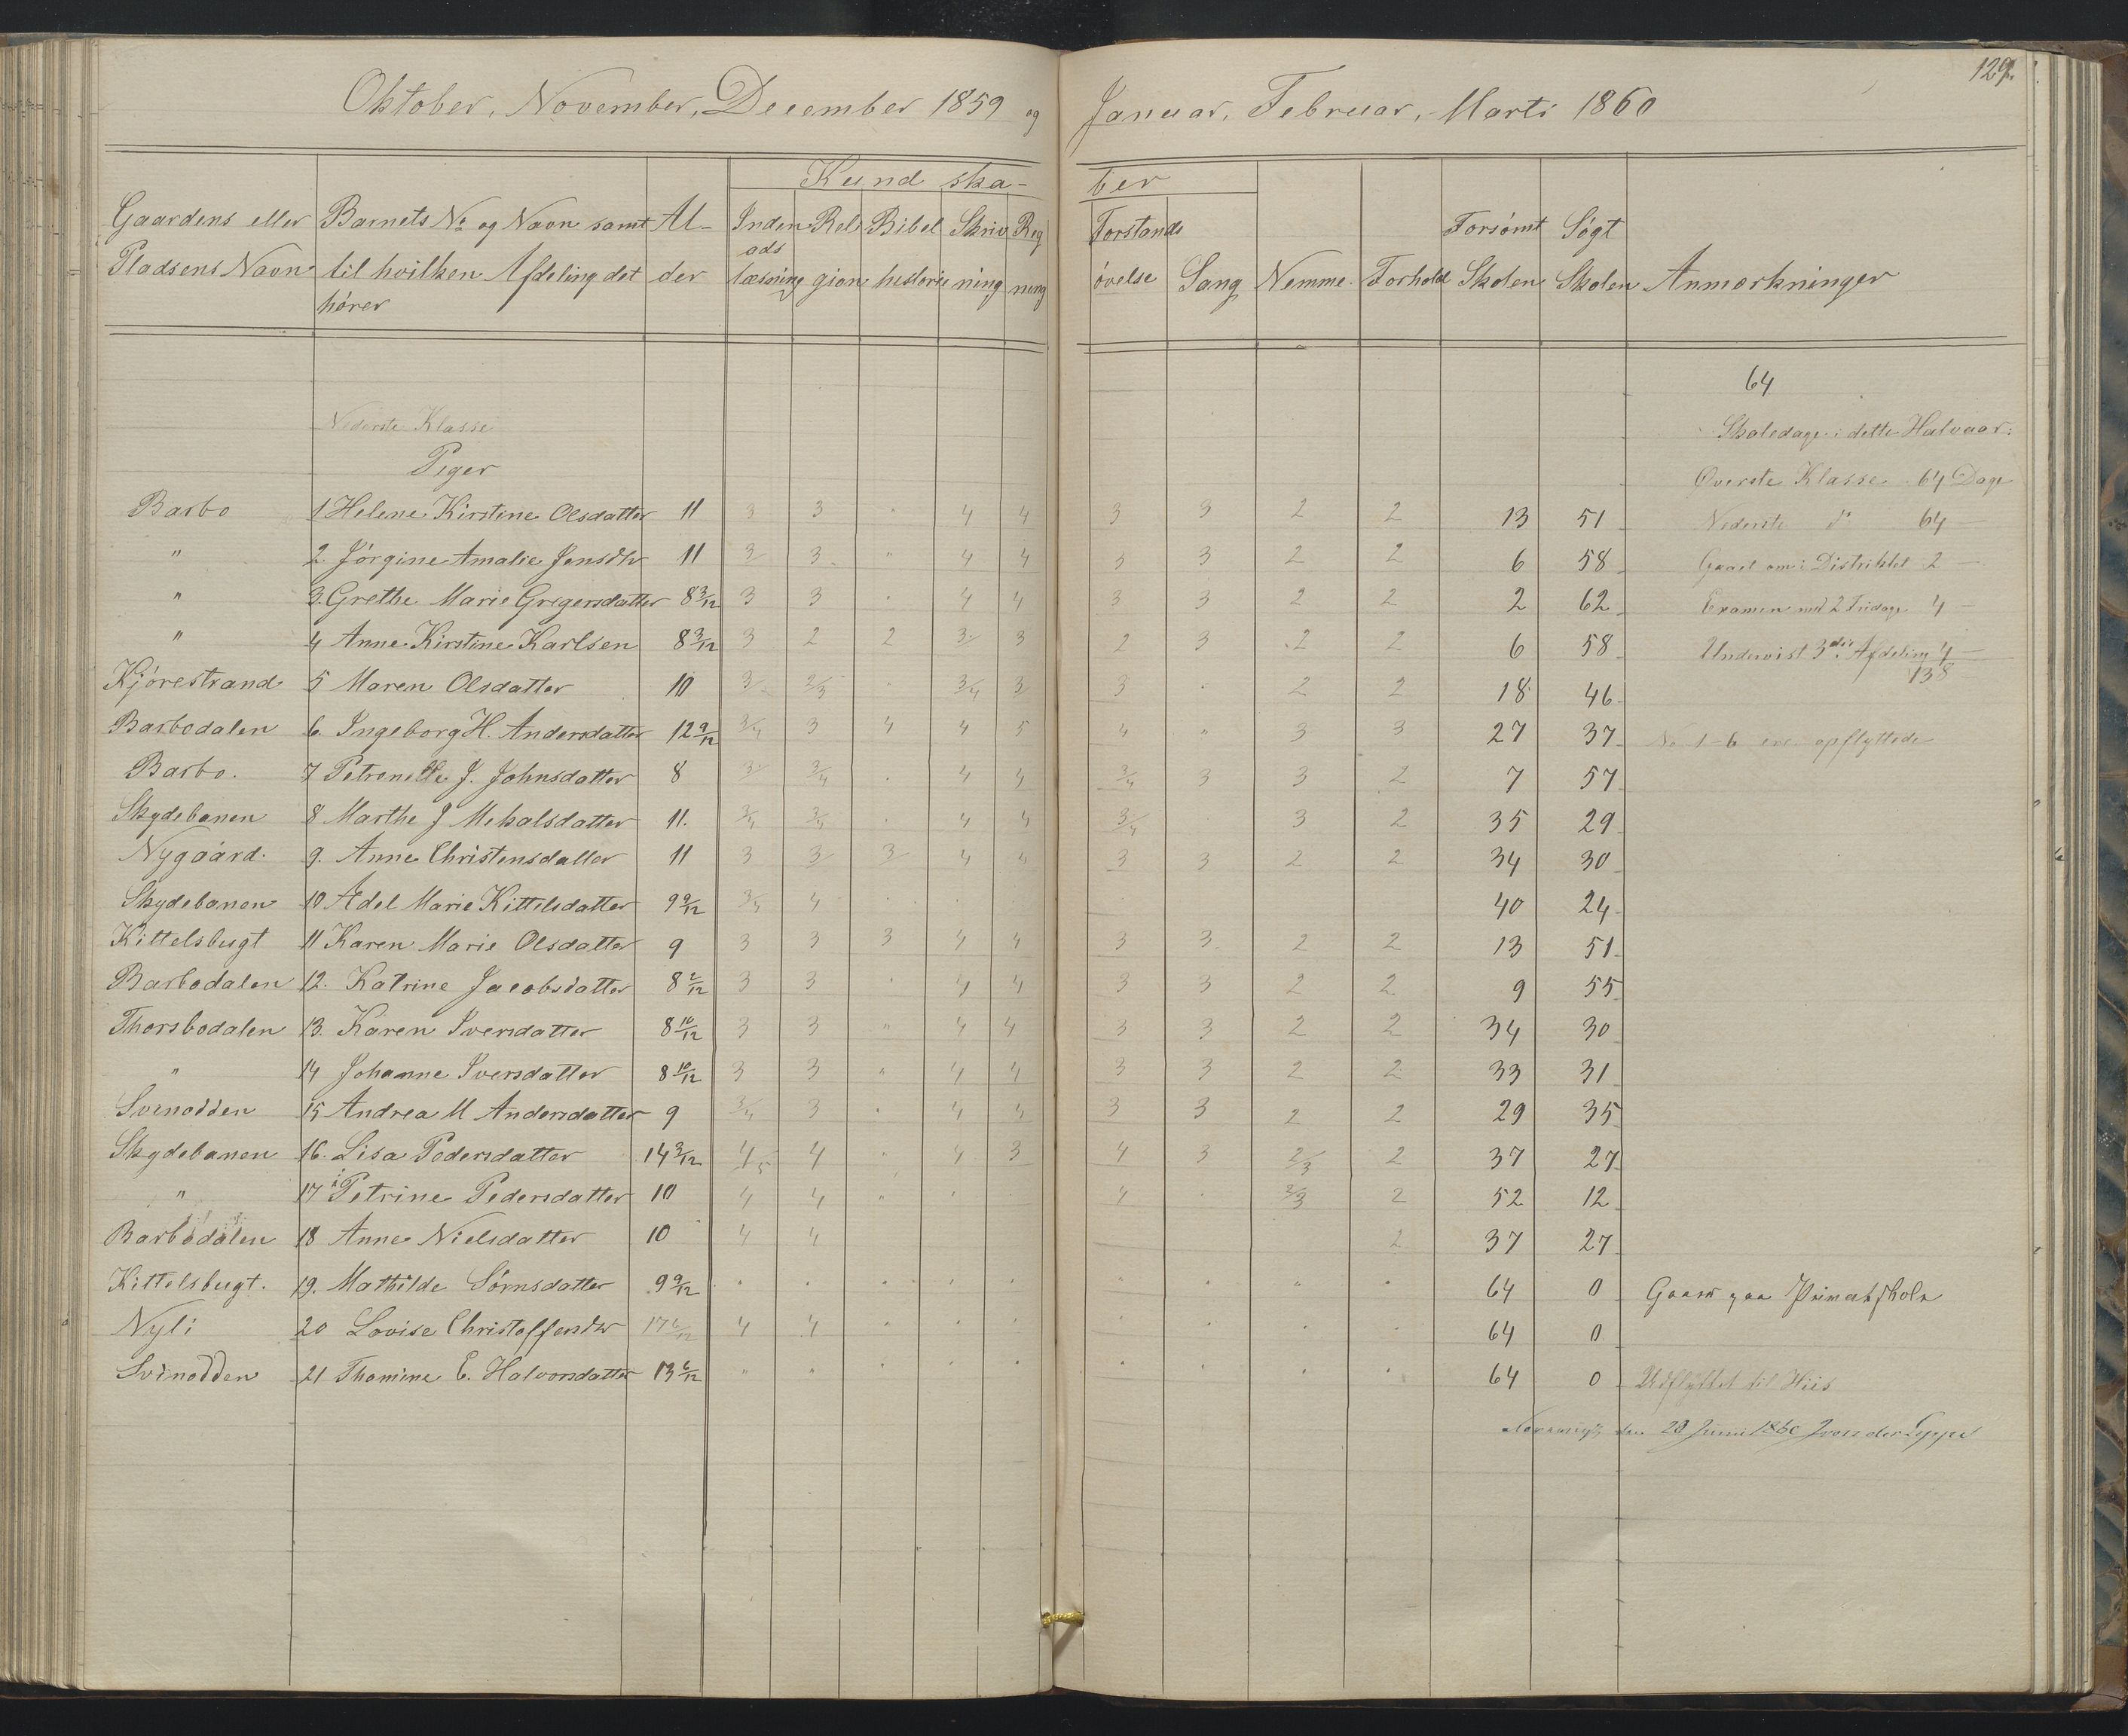 129.
Oktober, November, December 1859 og Januar, Februar, Marts 1860
Kund ska- ber
Gaardens eller Pladsens Navn
Barnets No og Navn samt til hvilken Afdeling det hører
Al- der
Inden ads læsning
Reli gion
Bibel historie
Skriv ning
Reg ning
Forstands øvelse
Sang
Nemme
Forhold
Forsømt Skolen
Søgt Skolen
Anmerkninger
64
Nederste Klasse
Skoledage i dette Halvaar:
Piger
Øverste Klasse 64 Dage
Barbo 1 Helene Kirstine Olsdatter 11 3 3 " 4 4 3 3 2 2 13 51 Nederste do 64 —
" 2. Jørgine Amalie Jensdtr 11 3 3 " 4 4 3 3 2 2 6 58 Gaaet om i Distriktet 2 —
" 3. Grethe Marie Gregersdatter 8 3/12 3 3 " 4 4 3 3 2 2 2 62 Examen med 2 4 —
" 4 Anne Kirstine Karlsen 8 3/12 3 2 2 3 3 2 3 2 2 6 58 Undervist 3die Afdeling 4 —
138
Kjørestrand 5 Maren Olsdatter 10 3 2/3 " 3/4 3 3 " 2 2 18 46
Barbodalen 6. Ingeborg H. Andersdatter 12 9/12 3/4 3 4 4 5 4 " 3 3 27 37 No 1-6 ere opflyttede
Barbo. 7 Petronelle J. Johnsdatter 8 3 3/4 " 4 4 3/4 3 3 2 7 57
Skydebanen 8 Marthe J Mekalsdatter 11. 3/4 3/4 " 4 4 3/4 3 2 35 29
Nygaard. 9. Anne Christensdatter 11 3 3 3 4 4 3 3 2 2 34 30
Skydebanen 10 Adel Marie Kittelsdatter 9 9/12 3/4 4 " " 40 24
Kittelsbugt 11 Karen Marie Olsdatter 9 3 3 3 4 4 3 3 2 2 13 51
Barbodalen 12. Katrine Jacobsdatter 8 2/12 3 3 " 4 4 3 3 2 2 9 55
Thorsbodalen 13. Karen Iversdatter 8 10/12 3 3 " 4 4 3 3 2 2 34 30
" 14 Johanne Iversdatter 8 10/12 3 3 " 4 4 3 3 2 2 33 31
Svinodden 15 Andrea M Andersdatter 9 3/4 3 " 4 4 3 3 2 2 29 35
Skydebanen 16. Lisa Pedersdatter 14 3/12 4/5 4 " 4 3 4 3 2/3 2 37 27
" 17 Petrine Pedersdatter 10 4 4 " " 4 " 2/3 2 52 12
Barbodalen 18 Anne Nielsdatter 10 4 4 2 37 27
Kittelsbugt. 19. Mathilde Sørnsdatter 9 9/12 " " " " " " " " " 64 0 Gaar paa Privatskole
Nyli 20 Lovise Christoffersdtr 4 4 " " " " " " " 64 0
Svinodden 21 Thomine E. Halvorsdatter 13 6/12 " " " " " " " " " 64 0 Udflyttet til Hiis
den 20 Juni 1860